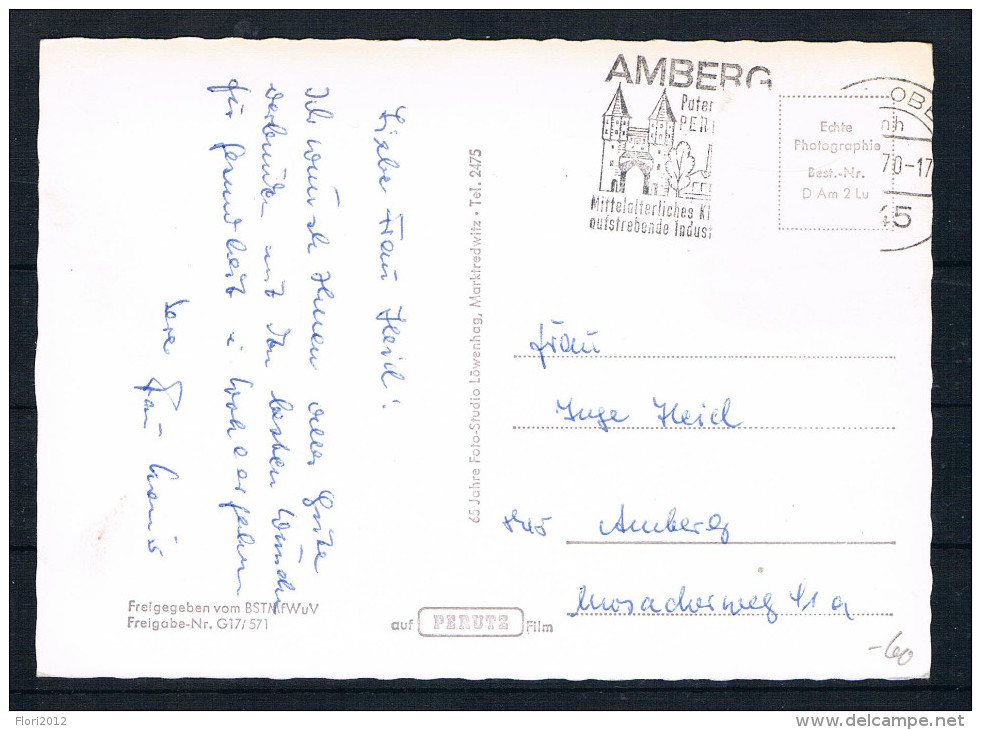 Liebe Frau Heid!
Ich wünsche Ihnen alles Gute
verbunden mit den besten Wünschen
für Gesundheit u Wohlergehen
Ihre Frau
Freigegeben vom BSTMfWuV
Freigabe-Nr. G17/571
65 Jahre Foto-Studio Löwenhag, Marktredwitz · Tel. 2475
auf PERUTZ Film
AMBERG
Pater
PER
Mittelalterliches Kl
aufstrebende Indus
OBE
70-17
45
Echte
Photographie
Best.-Nr.
D Am 2 Lu
Frau
Inge Heid
845 Amberg
Mosacherweg 41 a
-60
Flori2012
www.delcampe.net